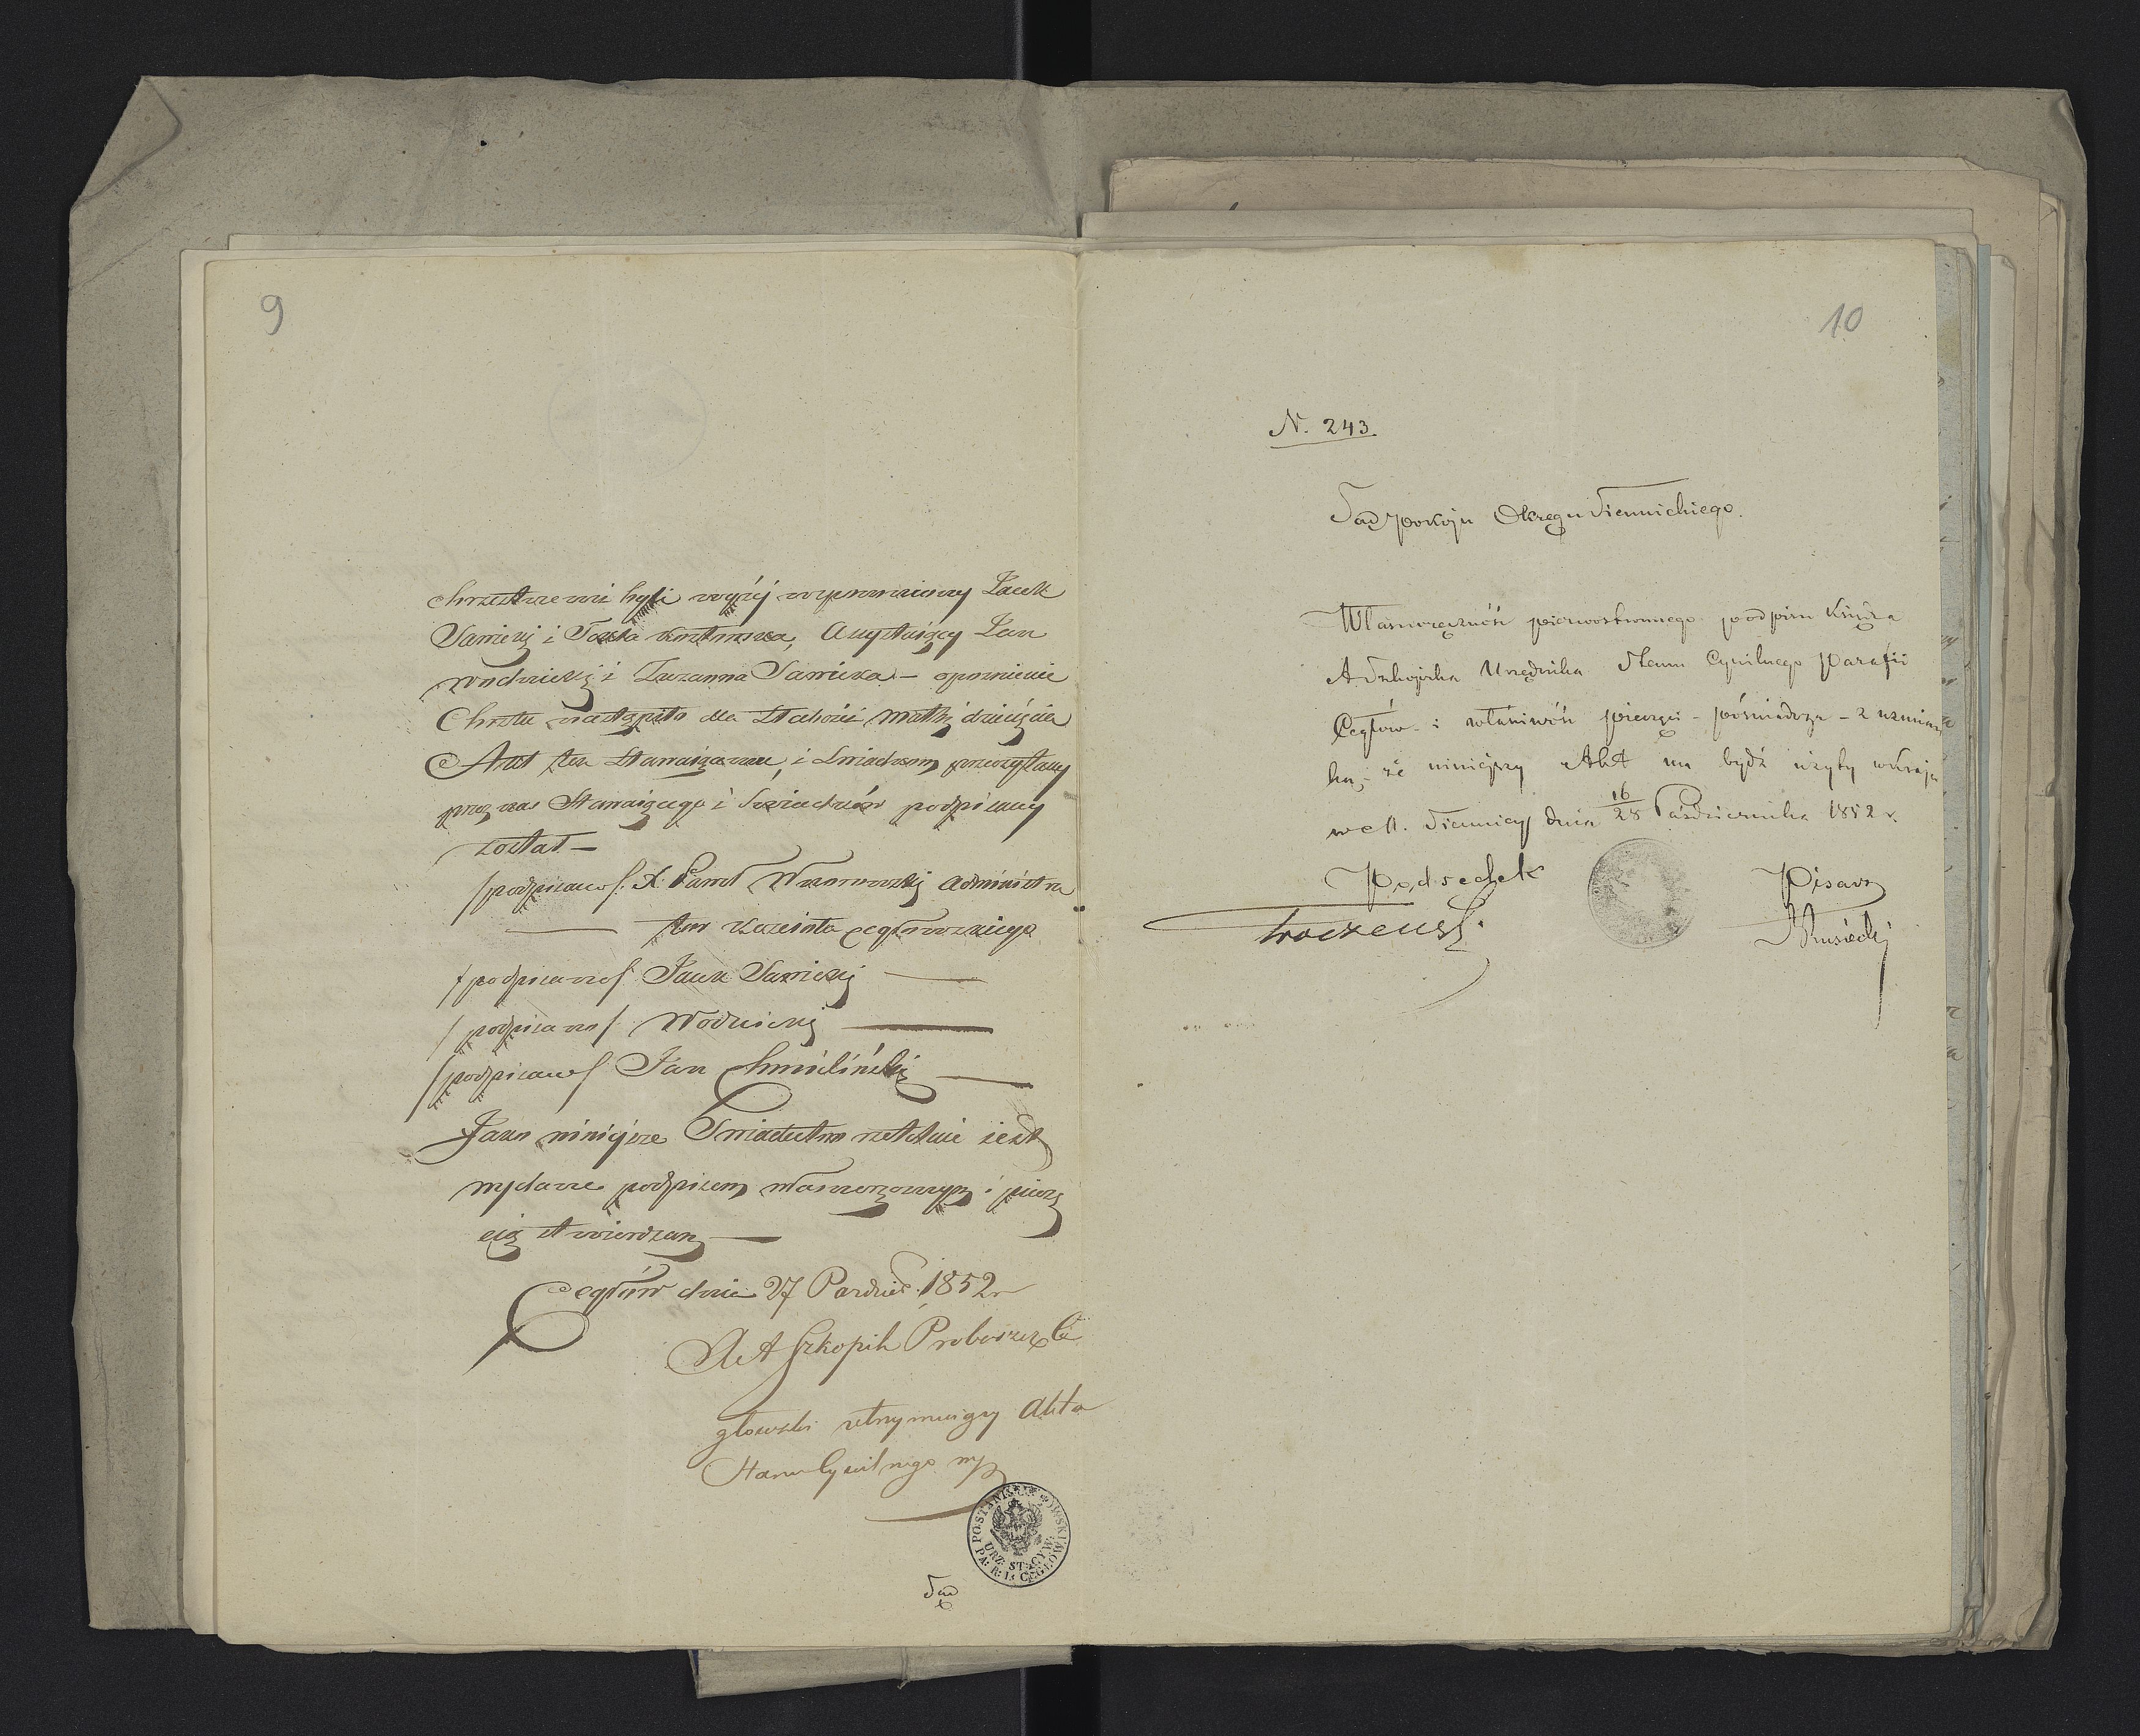 9
chrzestnemi byli wyżej wspomniony Jacek
Sawicki i Tekla asystujący Jan
Wodzicki i Zuzanna Sawicka – opoznienie
Chrztu nastąpiło dla Słabości Matki dziecięcia
Akt ten Stawaiącemu, i Świadkom przeczytany
przez nas Stawaiącego i Swiadków podpisany
został –
/podpisano/ X. Paweł Administra
tor Kościoła Cegłowskiego
/podpisano/ Jacek Sawicki
/podpisano/ Wodzicki
/podpisano/ Jan Chmieliński
Jako niniejsze Świadectwo rzetelnie iest
wydane podpisem własnoręcznym i piecz
ęcią stwierdzam
Cegłów dnia 27 Paździe. 1852 r
X A Szkopik Proboszcz Ce
głowski utrzymuiący Akta
Stanu Cywilnego mp
URZ: ST: CYW:
PA: R: K: CEGŁÓW
Sąd
10
N. 243
Sąd Pokoju Okręgu Siennickiego.
Własnoręczność pierwostronnego podpisu Księdza
A Szkopika Urzędnika Stanu Cywilnego Parafii
Cegłów – i właściwość pieczęci – poświadcza – z wzmian
ką, że niniejszy Akt ma bydź użyty w kraju
w M. Siennicy dnia 16/28 Października 1852 r.
Podsędek
Pisarz